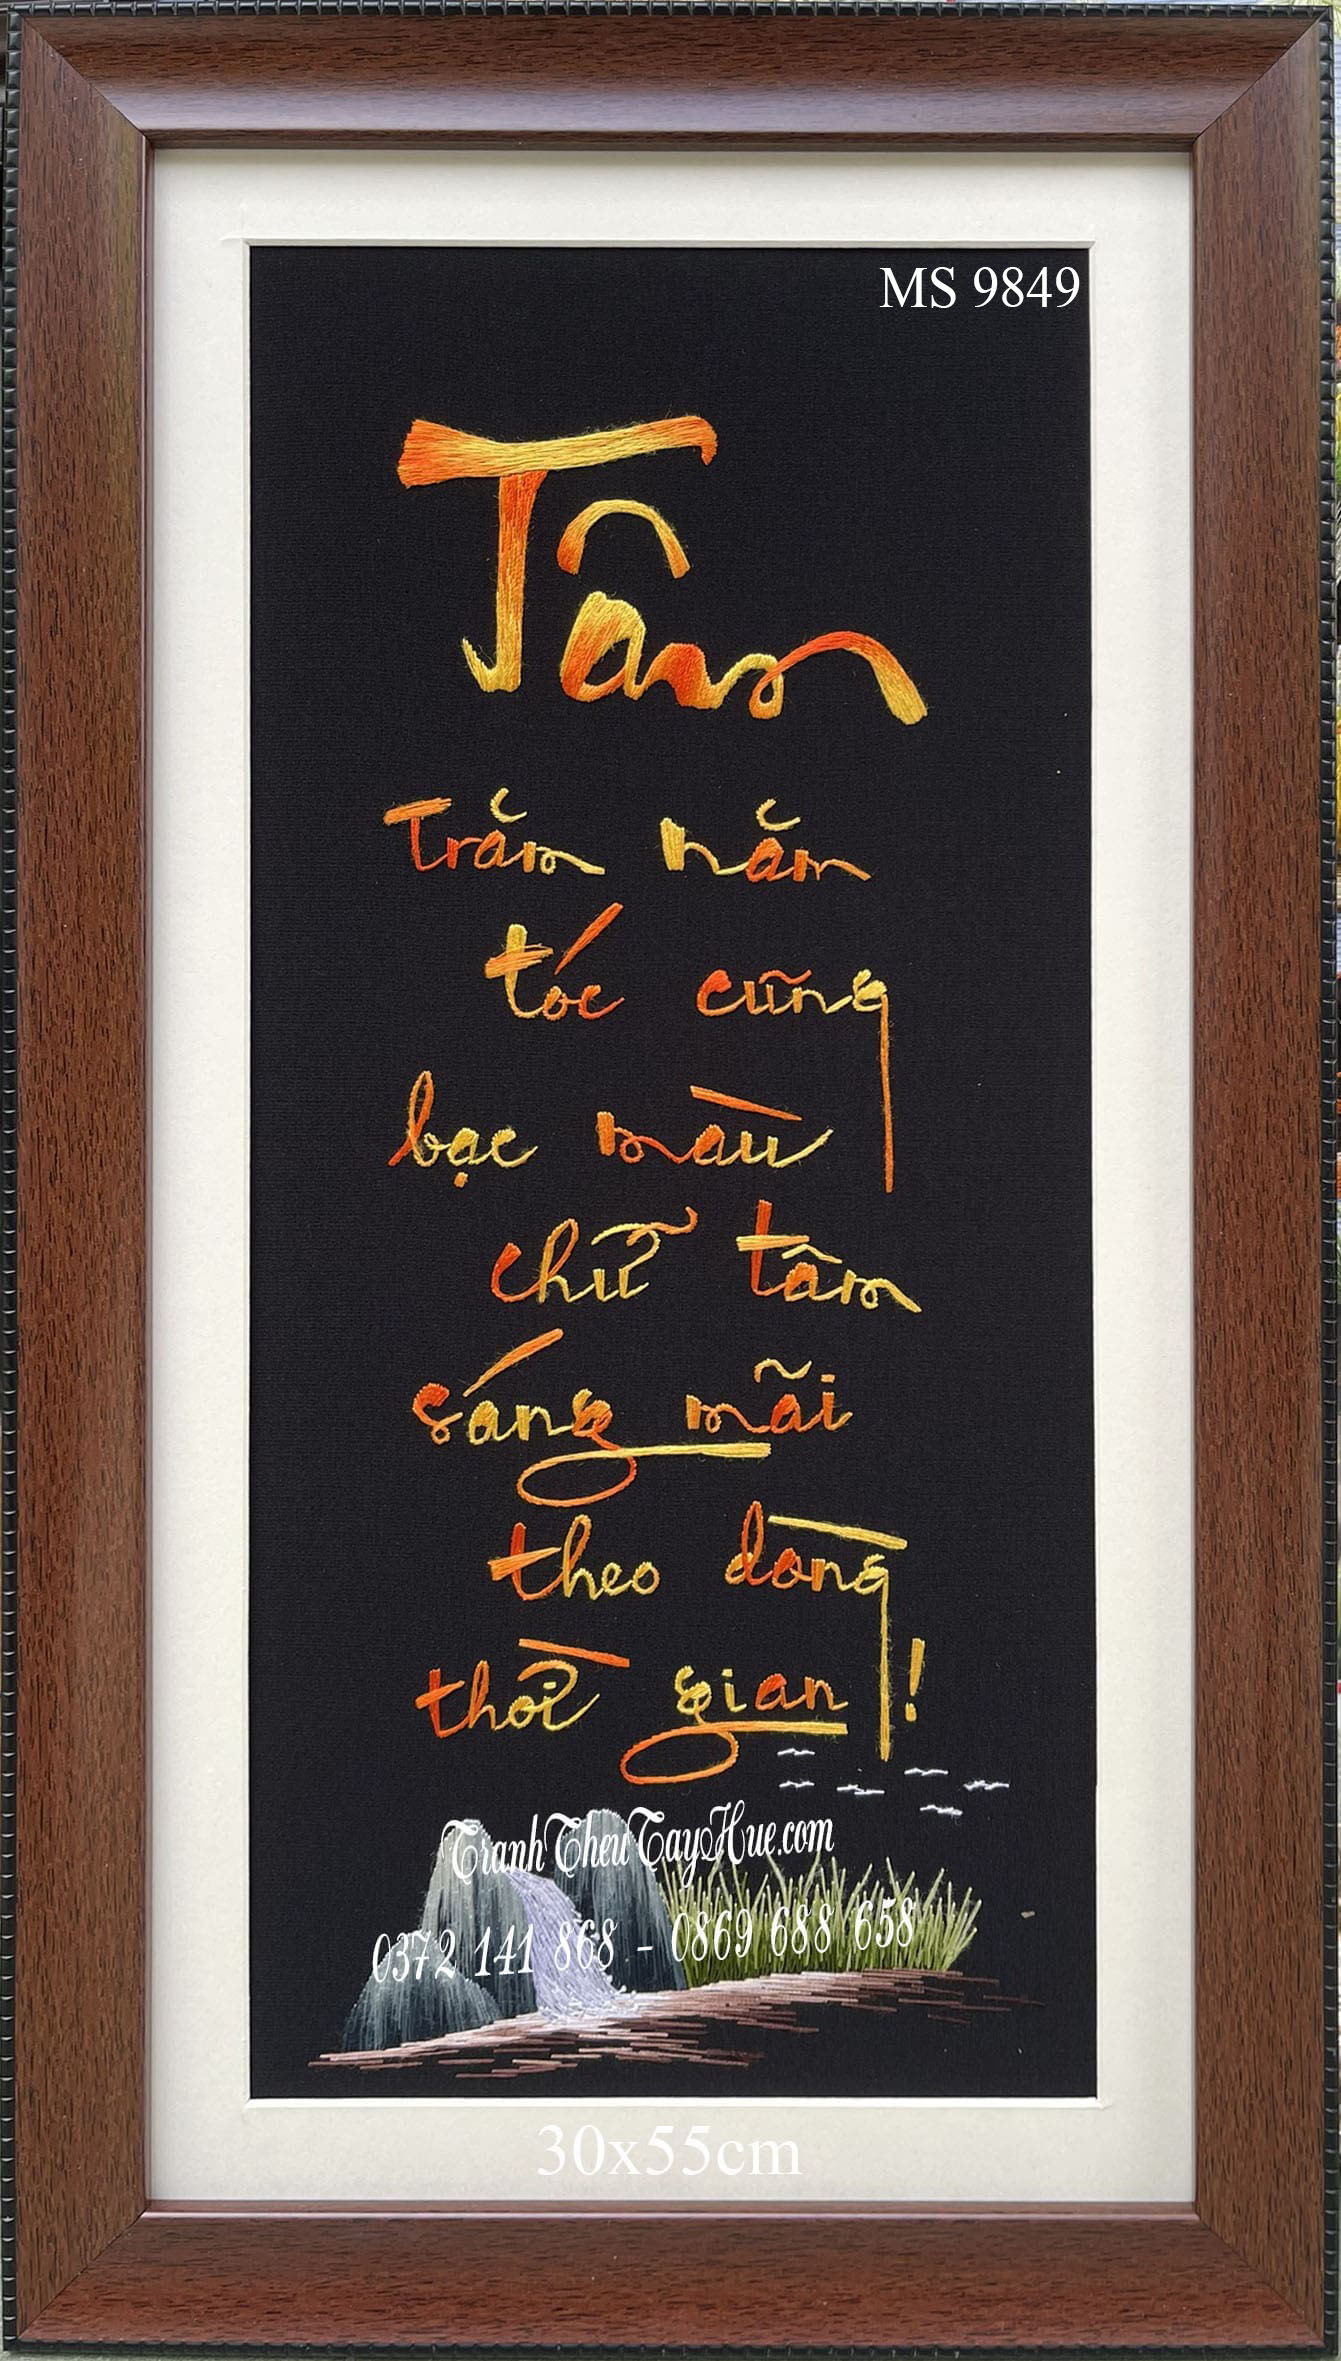 MS 9849
Tâm
Trăm năm
tóc cũng
bạc màu
chữ tâm
sáng mãi
theo dòng
thời gian !
TranhTheuTayHue.com
0372 141 868 - 0869 688 658
30x55cm